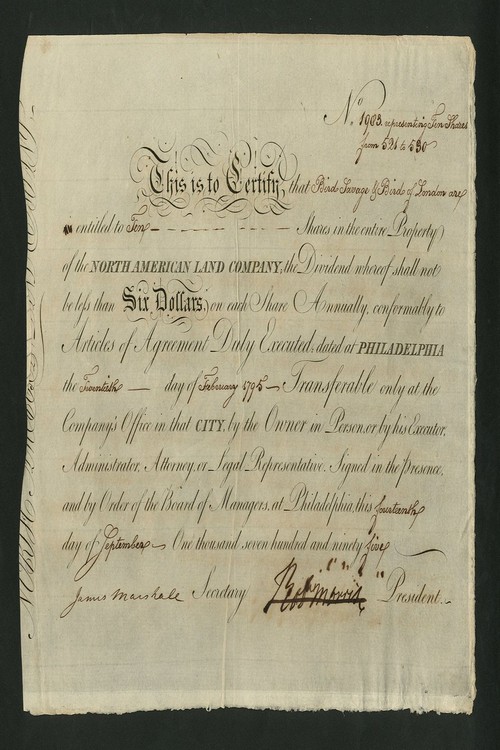 No. 1903. representing Ten Shares
from 521 to 530
This is to Certify, that Bird Savage & Bird of London are
entitled to Ten Shares in the entire Property
of the NORTH AMERICAN LAND COMPANY, the Dividend whereof shall not
be less than Six Dollars, on each Share Annually, conformably to
Articles of Agreement Duly Executed; dated at PHILADELPHIA
the Twentieth day of February 1795 Transferable only at the
Company's Office in that CITY, by the Owner in Person, or by his Executor,
Administrator, Attorney, or Legal Representative. Signed in the Presence,
and by Order of the Board of Managers, at Philadelphia, this fourteenth
day of September One thousand seven hundred and ninety five
James Marshall Secretary Rob Morris President.